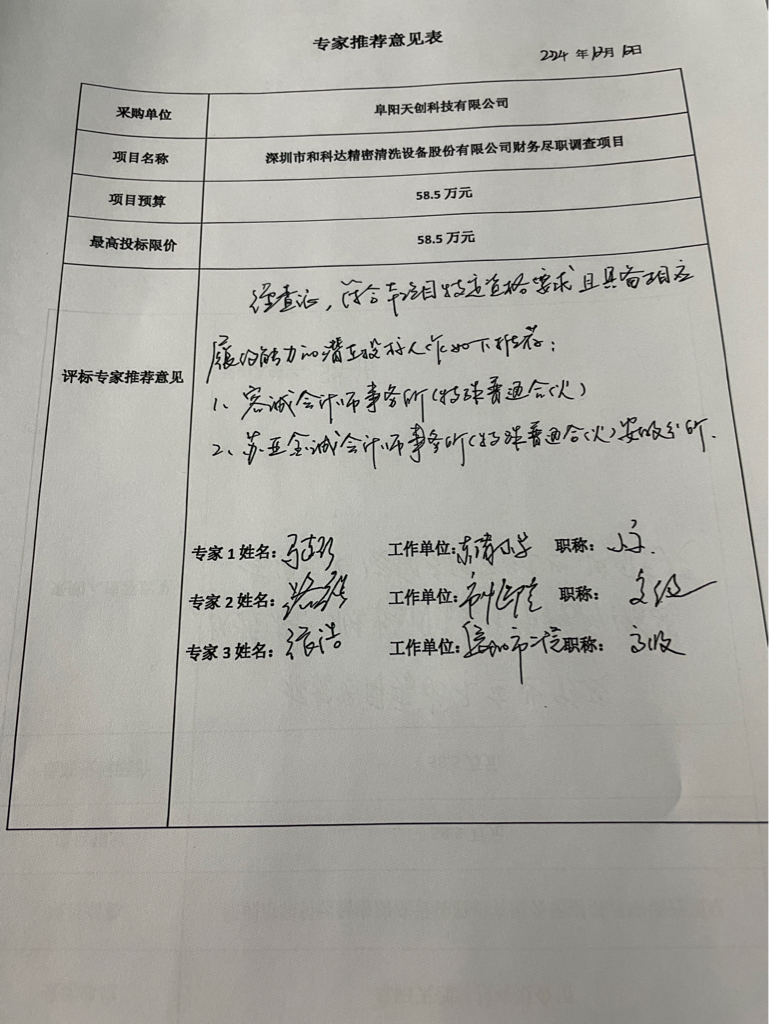 专家推荐意见表
2024 年12月16日
采购单位 阜阳天创科技有限公司
项目名称 深圳市和科达精密清洗设备股份有限公司财务尽职调查项目
项目预算 58.5 万元
最高投标限价 58.5 万元
评标专家推荐意见
经查证,符合本项目特定资格要求且具备相应
履约能力的潜在投标人作如下推荐:
1、容诚会计师事务所(特殊普通合伙)
2、苏亚金诚会计师事务所(特殊普通合伙)安徽分所.
专家 1 姓名: 工作单位: 职称:
专家 2 姓名: 工作单位: 职称:
专家 3 姓名: 浩 工作单位: 市二院 职称: 高级